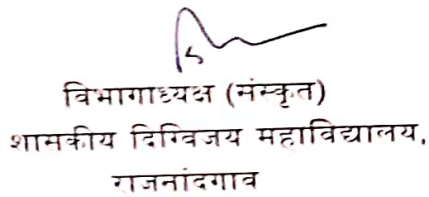 विभागाध्यक्ष (संस्कृत)
शासकीय दिग्विजय महाविद्यालय,
राजनांदगाव